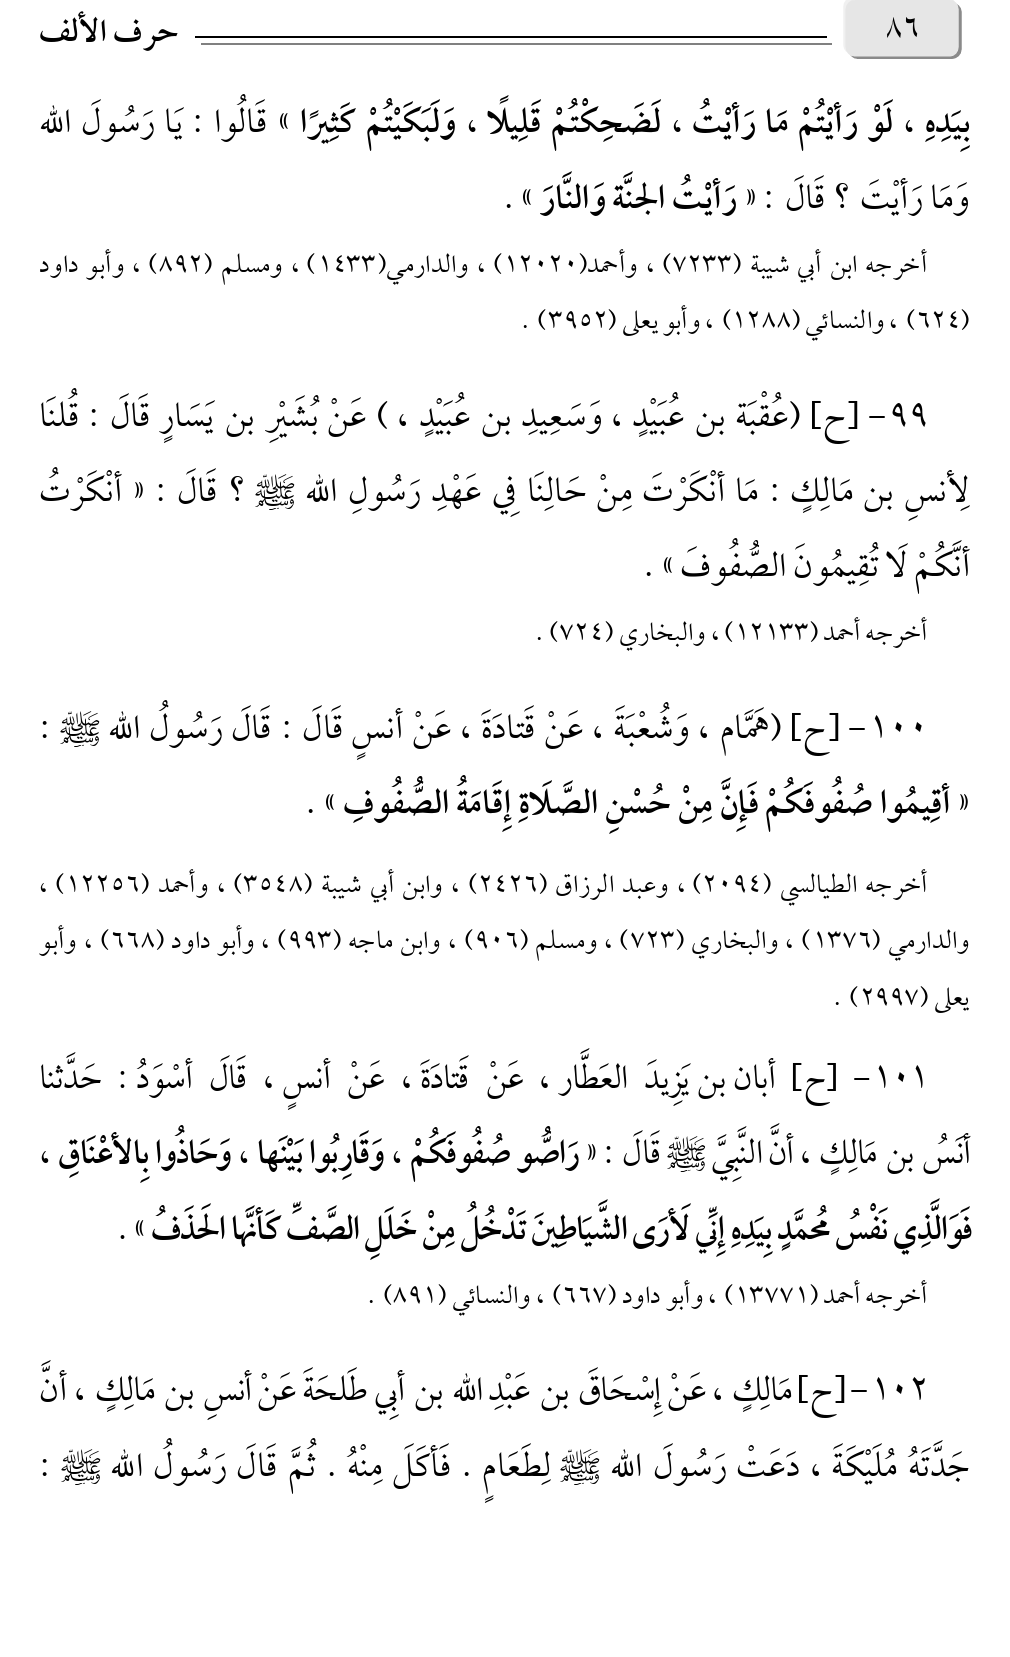 ٨٦ حرف الألف
بِيَدِهِ ، لَوْ رَأيْتُمْ مَا رَأيْتُ ، لَضَحِكْتُمْ قَلِيلًا ، وَلَبَكَيْتُمْ كَثِيرًا » قَالُوا : يَا رَسُولَ الله
وَمَا رَأيْتَ ؟ قَالَ : « رَأيْتُ الجنَّة وَالنَّارَ » .
أخرجه ابن أبي شيبة (٧٢٣٣) ، وأحمد(١٢٠٢٠) ، والدارمي(١٤٣٣) ، ومسلم (٨٩٢) ، وأبو داود
(٦٢٤) ، والنسائي (١٢٨٨) ، وأبو يعلى (٣٩٥٢) .
٩٩- [ح] (عُقْبَة بن عُبَيْدٍ ، وَسَعِيدِ بن عُبَيْدٍ ، ) عَنْ بُشَيْرِ بن يَسَارٍ قَالَ : قُلنَا
لِأنسِ بن مَالِكٍ : مَا أنْكَرْتَ مِنْ حَالِنَا فِي عَهْدِ رَسُولِ الله ﷺ ؟ قَالَ : « أنْكَرْتُ
أنَّكُمْ لَا تُقِيمُونَ الصُّفُوفَ » .
أخرجه أحمد (١٢١٣٣) ، والبخاري (٧٢٤) .
١٠٠- [ح] (هَمَّام ، وَشُعْبَةَ ، عَنْ قَتادَةَ ، عَنْ أنسٍ قَالَ : قَالَ رَسُولُ الله ﷺ :
« أقِيمُوا صُفُوفَكُمْ فَإِنَّ مِنْ حُسْنِ الصَّلَاةِ إِقَامَةُ الصُّفُوفِ » .
أخرجه الطيالسي (٢٠٩٤) ، وعبد الرزاق (٢٤٢٦) ، وابن أبي شيبة (٣٥٤٨) ، وأحمد (١٢٢٥٦) ،
والدارمي (١٣٧٦) ، والبخاري (٧٢٣) ، ومسلم (٩٠٦) ، وابن ماجه (٩٩٣) ، وأبو داود (٦٦٨) ، وأبو
يعلى (٢٩٩٧) .
١٠١- [ح] أبان بن يَزِيدَ العَطَّار ، عَنْ قَتادَةَ ، عَنْ أنسٍ ، قَالَ أسْوَدُ : حَدَّثنا
أنَسُ بن مَالِكٍ ، أنَّ النَّبِيَّ ﷺ قَالَ : « رَاصُّو صُفُوفَكُمْ ، وَقَارِبُوا بَيْنَها ، وَحَاذُوا بِالأعْنَاقِ ،
فَوَالَّذِي نَفْسُ مُحمَّدٍ بِيَدِهِ إِنِّي لَأرَى الشَّيَاطِينَ تَدْخُلُ مِنْ خَلَلِ الصَّفِّ كَأنَّها الحَذَفُ » .
أخرجه أحمد (١٣٧٧١) ، وأبو داود (٦٦٧) ، والنسائي (٨٩١) .
١٠٢-[ح] مَالِكٍ ، عَنْ إِسْحَاقَ بن عَبْدِ الله بن أبِي طَلحَةَ عَنْ أنسِ بن مَالِكٍ ، أنَّ
جَدَّتَهُ مُلَيْكَةَ ، دَعَتْ رَسُولَ الله ﷺ لِطَعَامٍ . فَأكَلَ مِنْهُ . ثُمَّ قَالَ رَسُولُ الله ﷺ :